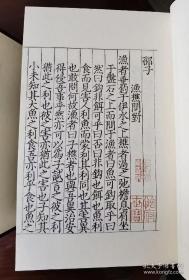 邵子
漁樵問對
漁者垂釣于伊水之上樵者過之弛擔息肩坐
于磐石之上而問于漁者曰魚可鉤取乎曰
然曰鉤非餌可乎曰否曰非鉤也餌也魚利
食而見害人利魚而蒙利其利同也其害異
也敢問何故漁者曰子樵者也與吾異治安
得侵吾事乎然亦可以為子試言之彼之利
猶此之利也彼之害亦猶此之害也子知其
小未知其大魚之利食吾亦利乎食也魚之